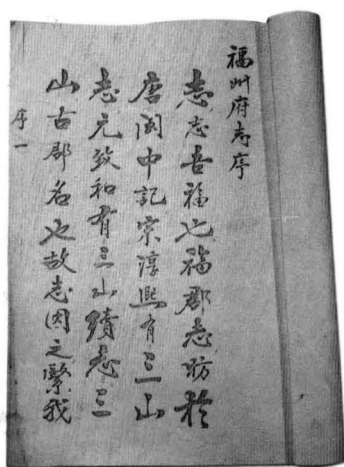 福州府志序
志志吾福也福郡志昉於
唐閩中記宋淳熙有三山
志元致和有三山續志三
山古郡名也故志因之繄我
序一